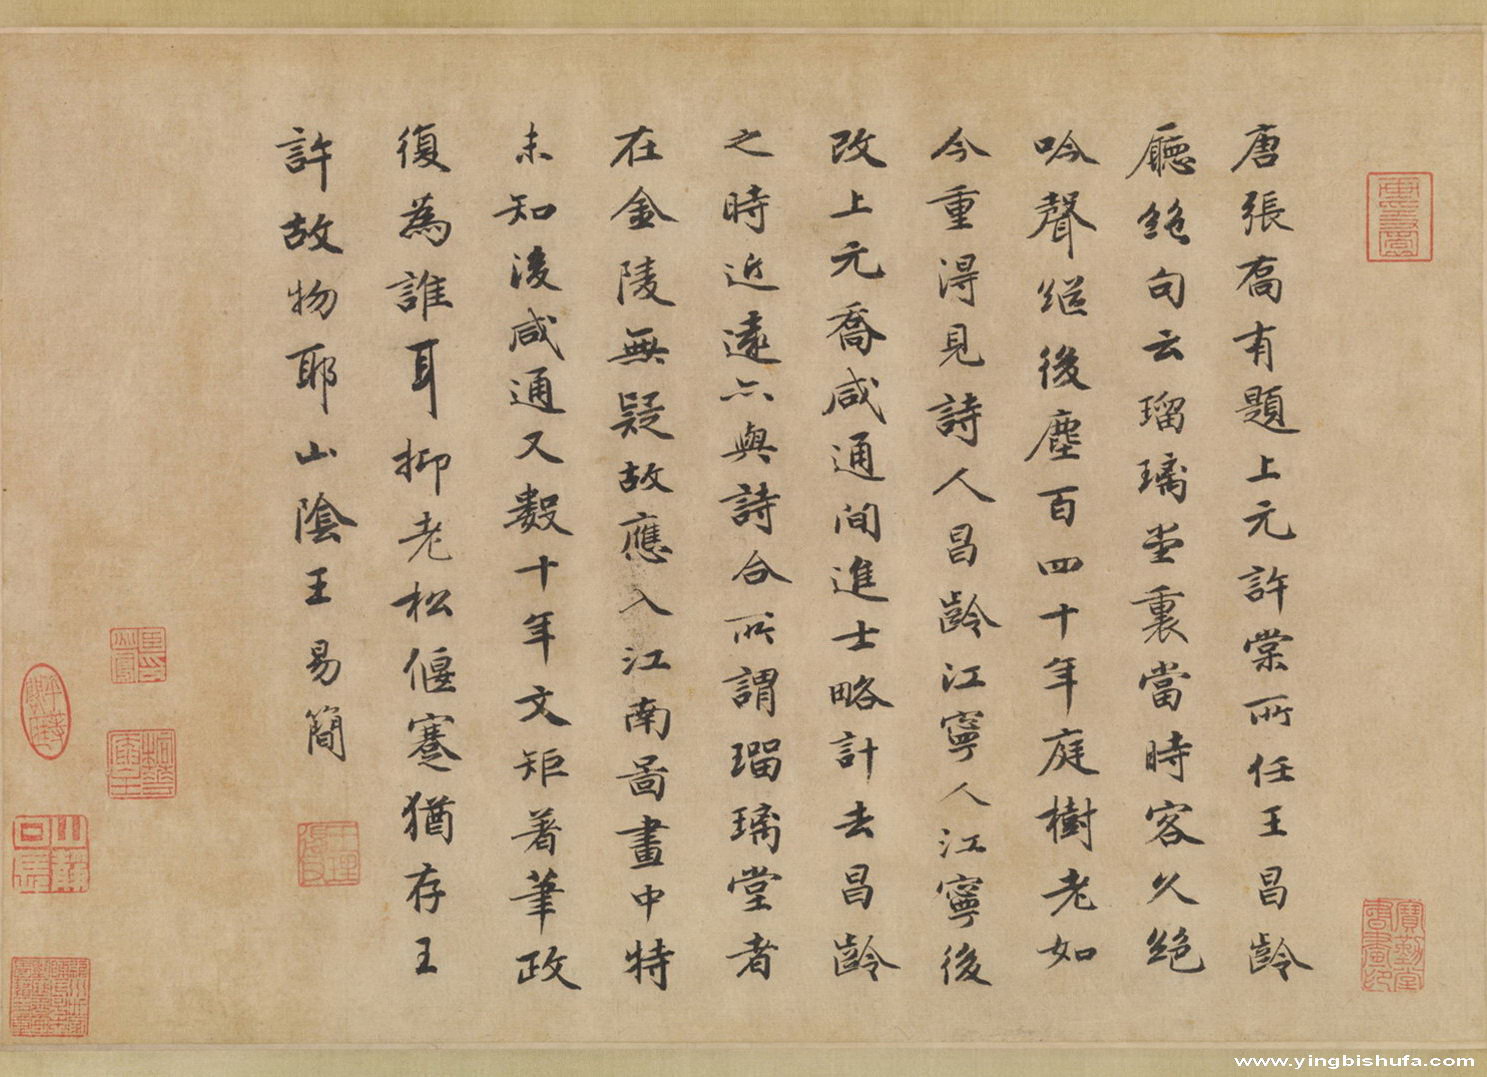 唐張喬有題上元許棠所任王昌齡
廳絕句云瑠璃堂裏當時客久絕
吟聲繼後塵百四十年庭樹老如
今重得見詩人昌齡江寧人江寧後
改上元喬咸通間進士略計去昌齡
之時近遠亦與詩合所謂瑠璃堂者
在金陵無疑故應入江南畵畫中特
未知後咸通又數十年文矩著筆政
復為誰耳抑老松偃蹇猶存王
許故物耶山陰王易簡
寶勤堂書畫印
www.yingbishufa.com